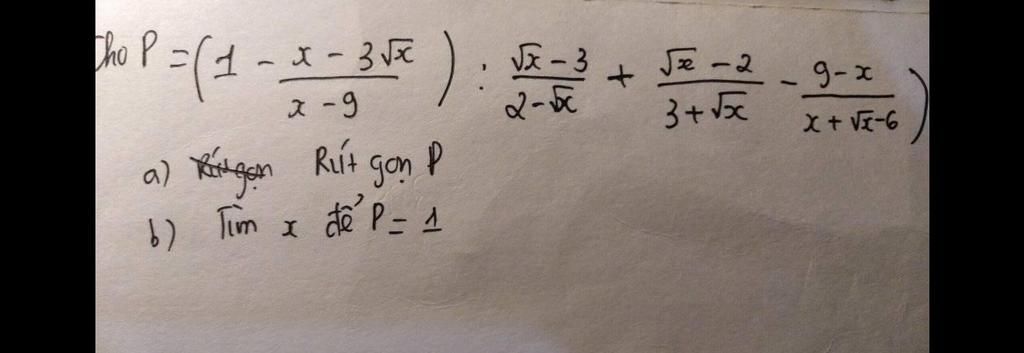 Cho P = (1 - \frac{x - 3\sqrt{x}}{x - 9}) : \frac{\sqrt{x} - 3}{2 - \sqrt{x}} + \frac{\sqrt{x} - 2}{3 + \sqrt{x}} - \frac{9 - x}{x + \sqrt{x} - 6})
a) Rút gọn Rút gọn P
b) Tìm x để P = 1